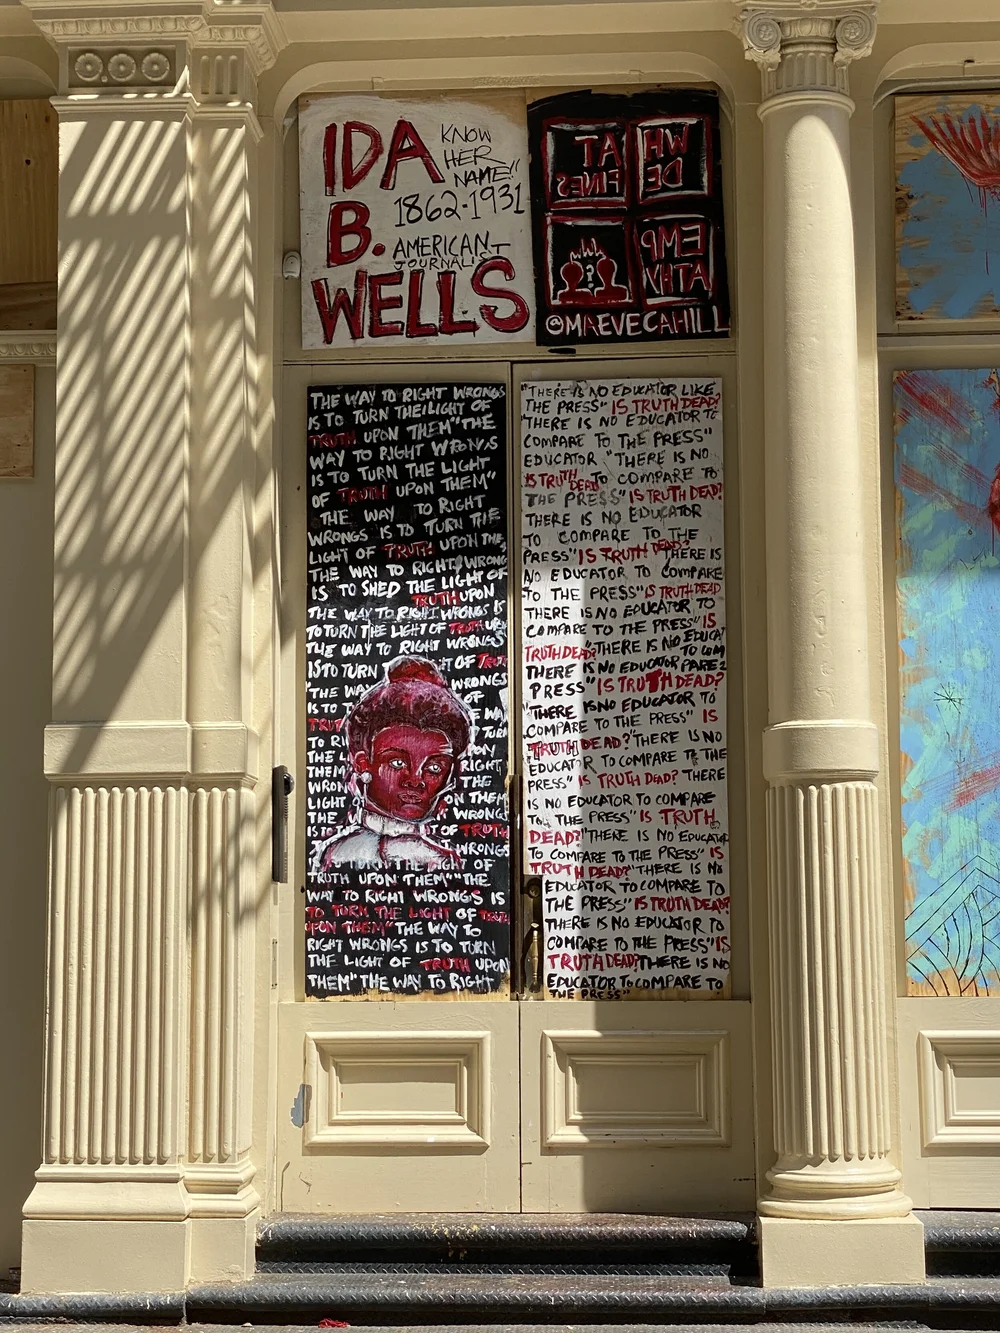 IDA
B.
WELLS
KNOW
HER
NAME!!
1862-1931
AMERICAN
JOURNALIST
WH AT
DE FINES
?
EMP
ATHY
@MAEVECAHILL
THE WAY TO RIGHT WRONGS
IS TO TURN THE LIGHT OF
TRUTH UPON THEM" "THE
WAY TO RIGHT WRONGS
IS TO TURN THE LIGHT
OF TRUTH UPON THEM"
THE WAY TO RIGHT
WRONGS IS TO TURN THE
LIGHT OF TRUTH UPON THE,
THE WAY TO RIGHT WRONG
IS TO SHED THE LIGHT OF
TRUTH UPON
THE WAY TO RIGHT WRONGS IS
TO TURN THE LIGHT OF TRUTH UPON
THE WAY TO RIGHT WRONGS
IS TO TURN T OF TRUTH
"THE WAY WRONGS
IS TO T OF
TRUT E WAY
TO RI TURN
THE LI PON
THEM" RIGHT
WRON THE
LIGHT ON THEM
THE WRONGS
IS TO T OF TRUTH
WRONGS
IS TO TURN THE LIGHT OF
TRUTH UPON THEM" "THE
WAY TO RIGHT WRONGS IS
TO TURN THE LIGHT OF TRUTH
UPON THEM" THE WAY TO
RIGHT WRONGS IS TO TURN
THE LIGHT OF TRUTH UPON
THEM" THE WAY TO RIGHT
"THERE IS NO EDUCATOR LIKE
THE PRESS" IS TRUTH DEAD?
"THERE IS NO EDUCATOR TO
COMPARE TO THE PRESS"
EDUCATOR "THERE IS NO
IS TRUTH DEAD TO COMPARE TO
THE PRESS" IS TRUTH DEAD?
THERE IS NO EDUCATOR
TO COMPARE TO THE
PRESS" IS TRUTH DEAD? THERE IS
NO EDUCATOR TO COMPARE
TO THE PRESS" IS TRUTH DEAD
THERE IS NO EDUCATOR TO
COMPARE TO THE PRESS" IS
TRUTH DEAD? "THERE IS NO EDUCA
THERE IS NO EDUCATOR TO COM
PARE 2
PRESS" IS TRUTH DEAD?
"THERE IS NO EDUCATOR TO
COMPARE TO THE PRESS" IS
TRUTH DEAD? "THERE IS NO
EDUCATOR TO COMPARE TO THE
PRESS" IS TRUTH DEAD? THERE
IS NO EDUCATOR TO COMPARE
TO THE PRESS" IS TRUTH
DEAD? "THERE IS NO EDUCATOR
TO COMPARE TO THE PRESS" IS
TRUTH DEAD? "THERE IS NO
EDUCATOR TO COMPARE TO
THE PRESS" IS TRUTH DEAD?
THERE IS NO EDUCATOR TO
COMPARE TO THE PRESS" IS
TRUTH DEAD? THERE IS NO
EDUCATOR TO COMPARE TO
THE PRESS"